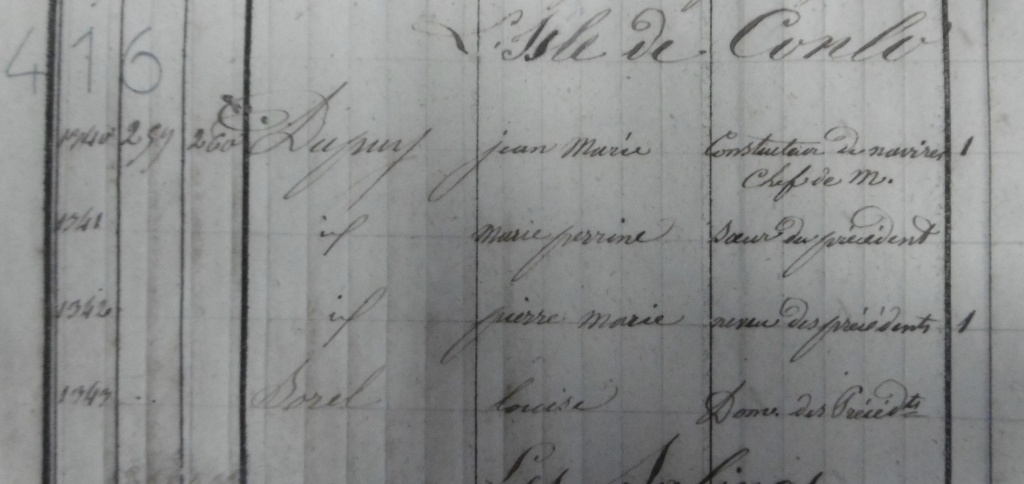 L'Isle de Conlo
416
1340 259 260 Dupuy jean Marie Constructeur de navires 1
Chef de M.
1341 id marie perrine Sœur du précédent
1342 id pierre Marie neveu des précédents 1
1343 Sorel louise Dome. des Précédts
Les Salines